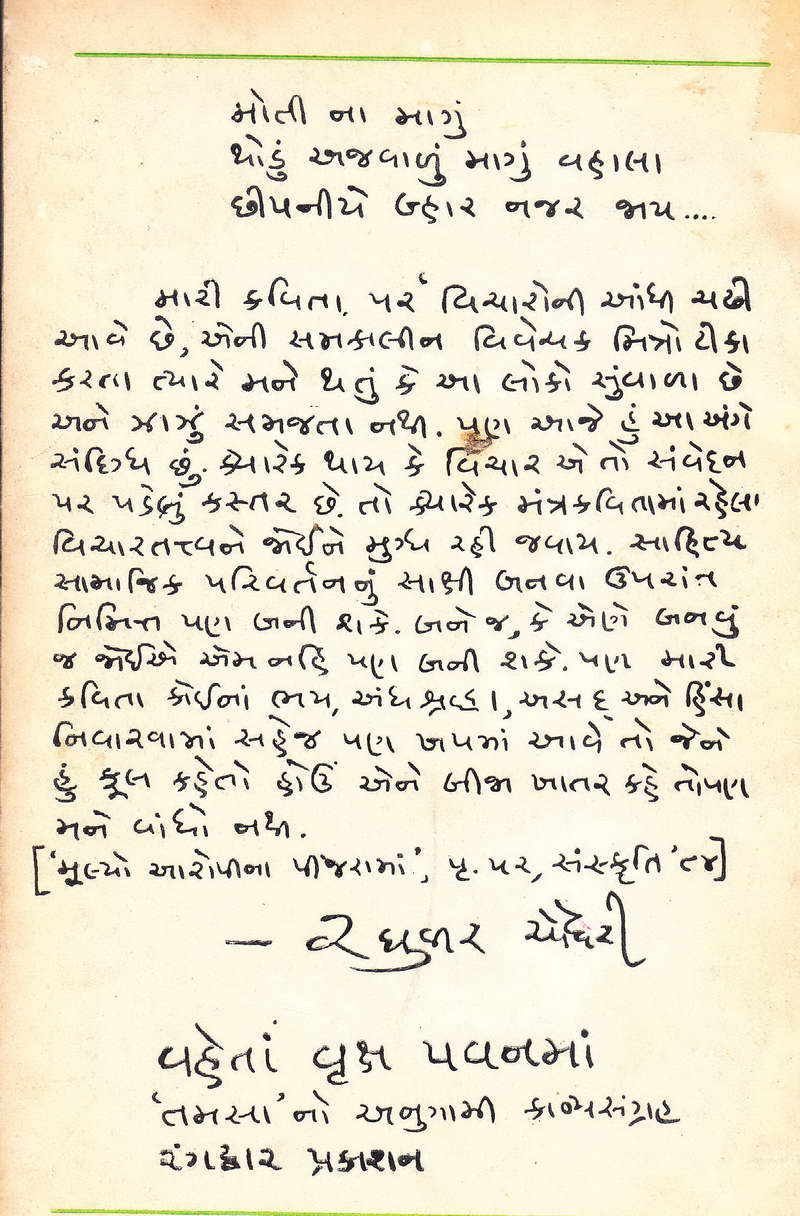 મોતી ના માગું
થોડું અજવાળું માગું વહાલા
છીપનીયે બ્હાર નજર જાય....
મારી કવિતા પર 'વિચારોની આંધી ચઢી
આવે છે, એની સમકાલીન વિવેચક મિત્રો ટીકા
કરતા ત્યારે મને થતું કે આ લોકો સુંવાળા છે
અને ઝાઝું સમજતા નથી. પણ આજે હું આ અંગે
સંદિગ્ધ છું. ક્યારેક થાય કે વિચાર એ તો સંવેદન
પર પડેલું કસ્તર છે. તો ક્યારેક મંત્રકવિતામાં રહેલા
વિચારતત્ત્વને જોઈને મુગ્ધ રહી જવાય. સાહિત્ય
સામાજિક પરિવર્તનનું સાક્ષી બનવા ઉપરાંત
નિમિત્ત પણ બની શકે. બને જ, કે એણે બનવું
જ જોઈએ એમ નહિ પણ બની શકે. પણ મારી
કવિતા કોઈનાં ભય, અંધશ્રદ્ધા, અસદ્ અને હિંસા
નિવારવામાં સહેજ પણ ખપમાં આવે તો જેને
હું ફૂલ કહેતો હોઉં એને બીજા ખાતર કહે તોપણ
મને વાંધો નથી.
['મૂલ્યો આરોપીના પીંજરામાં', પૃ. ૫૨, સંસ્કૃતિ '૮૪]
— રઘુવીર ચૌધરી
વહેતાં વૃક્ષ પવનમાં
'તમસા'નો અનુગામી કાવ્યસંગ્રહ
રંગદ્વાર પ્રકાશન